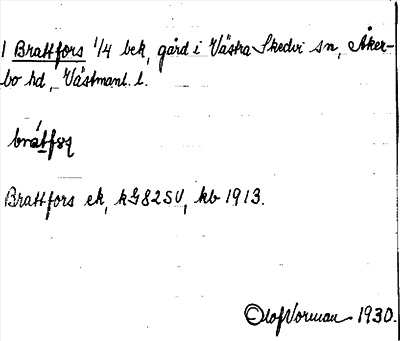 1 Brattfors 1/4 bek, gård i Västra Skedvi sn, Åker-
bo hd, Västmanl. l.
Brattfors ek, kG82SV, kb 1913.
Olof Vorman 1930.